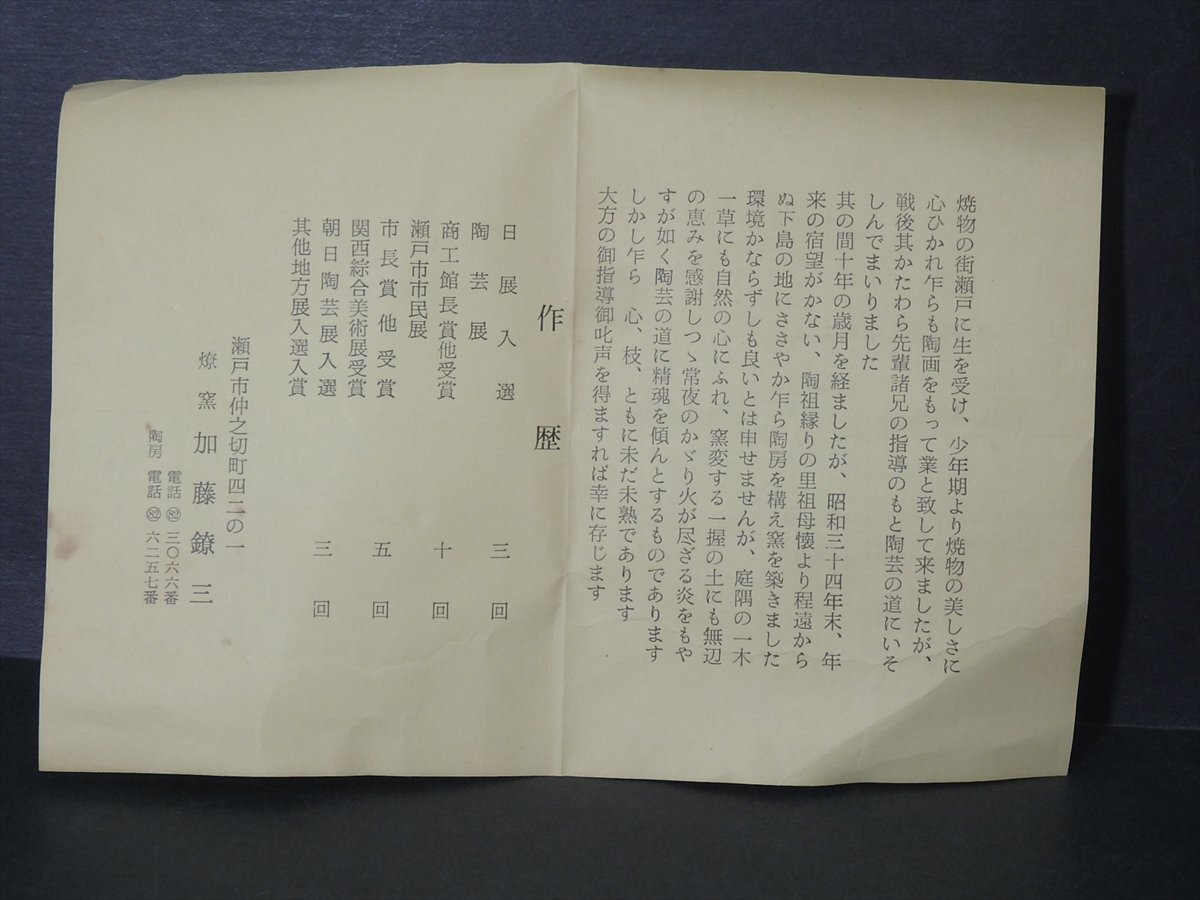 焼物の街瀬戸に生を受け、少年期より焼物の美しさに
心ひかれ乍らも陶画をもって業と致して来ましたが、
戦後其かたわら先輩諸兄の指導のもと陶芸の道にいそ
しんでまいりました
其の間十年の歳月を経ましたが、昭和三十四年末、年
来の宿望がかない、陶祖縁りの里祖母懐より程遠から
ぬ下島の地にささやか乍ら陶房を構え窯を築きました
環境かならずしも良いとは申せませんが、庭隅の一木
一草にも自然の心にふれ、窯変する一握の土にも無辺
の恵みを感謝しつゝ常夜のかゞり火が尽ざる炎をもや
すが如く陶芸の道に精魂を傾んとするものであります
しかし乍ら 心、枝、ともに未だ未熟であります
大方の御指導御叱声を得ますれば幸に存じます
作歴
日展入選 三回
陶芸展
商工館長賞他受賞 十回
瀬戸市市民展
市長賞他受賞 五回
関西綜合美術展受賞
朝日陶芸展入選 三回
其他地方展入選入賞
瀬戸市仲之切町四二の一
燎窯 加藤鐐三
電話㉒三〇六六番
陶房 電話㉒六二五七番